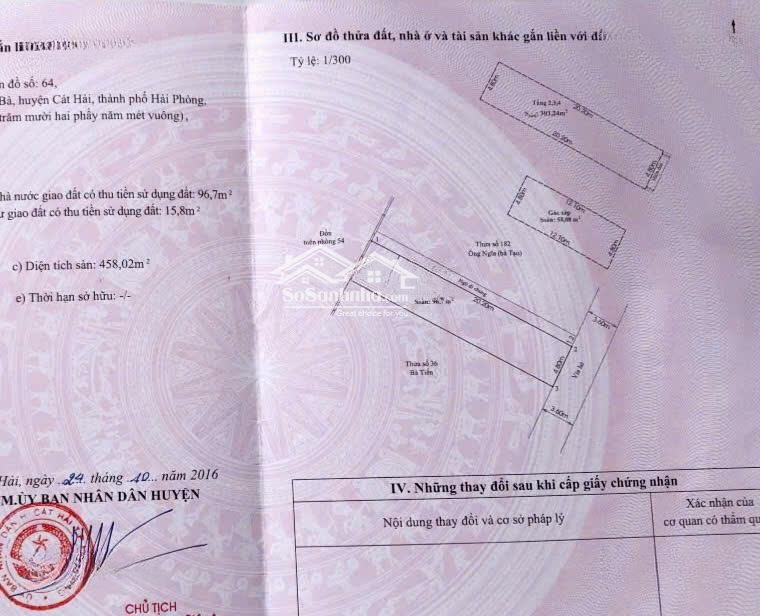 n đồ số: 64,
Bà, huyện Cát Hải, thành phố Hải Phòng,
trăm mười hai phẩy năm mét vuông),
hà nước giao đất có thu tiền sử dụng đất: 96,7m²
giao đất có thu tiền sử dụng đất: 15,8m²
c) Diện tích sàn: 458,02m²
e) Thời hạn sở hữu: -/-
Hải, ngày 29. tháng .10... năm 2016
M.ỦY BAN NHÂN DÂN HUYỆN
CÁT HẢI
CHỦ TỊCH
III. Sơ đồ thửa đất, nhà ở và tài sản khác gắn liền với đấ
Tỷ lệ: 1/300
4.80m
Tầng 2,3,4
20.20m
20.20m
4.80m
4.80m
12.10m
Gác xép
12.10m
4.80m
Đồn
biên phòng 54
Thửa số 182
Ông Nghĩa (bà Tạo)
1
Ngõ đi chung
Ssàn: 96,7 m²
20.20m
SoSanhnha.com
Great choice for you
1.2
2
4.80m
3
3.60m
3.60m
Vỉa hè
Thửa số 36
Bà Tiến
IV. Những thay đổi sau khi cấp giấy chứng nhận
Nội dung thay đổi và cơ sở pháp lý
Xác nhận của
cơ quan có thẩm qu